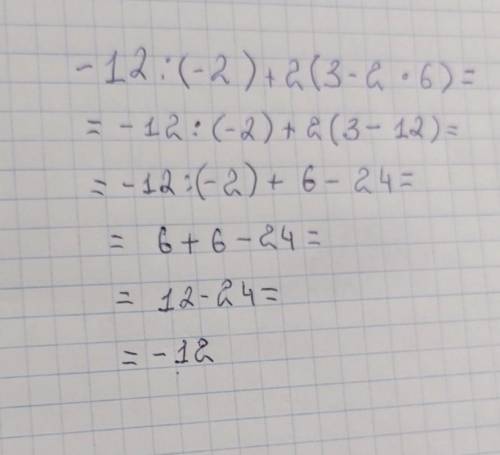 -12:(-2)+2(3-2·6)=
=-12:(-2)+2(3-12)=
=-12:(-2)+6-24=
=6+6-24=
=12-24=
=-12